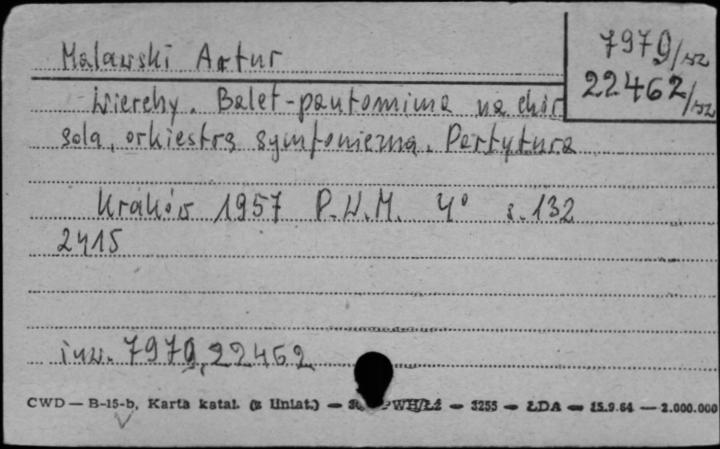 Malawski Artur
7970/sz
22462/sz
Wierchy. Balet-pantomima na chór
sola, orkiestrę symfoniczną. Partytura
Kraków 1957 P.W.M. 4° s. 132
2415
inw. 7970, 22462
CWD — B-15-b, Karta katal. (z Uniat.) — PWH/Łź — 3255 — ŁDA — 15.9.64 — 2.000.000